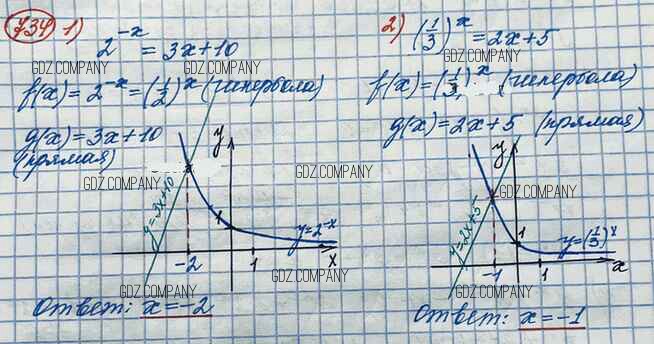 734 1)
2^{-x} = 3x+10
GDZ.COMPANY
f(x) = 2^{-x} = (1/2)^x (гипербола)
GDZ.COMPANY
g(x) = 3x+10
(прямая)
GDZ.COMPANY
y
y=3x+10
GDZ.COMPANY
1
y=2^{-x}
-2
1
x
GDZ.COMPANY
GDZ.COMPANY
Ответ: x=-2
2) (1/3)^x = 2x+5
GDZ.COMPANY
f(x) = (1/3)^x (гипербола)
GDZ.COMPANY
g(x) = 2x+5 (прямая)
GDZ.COMPANY
y
GDZ.COMPANY
y=2x+5
1
y=(1/3)^x
GDZ.COMPANY
-1
1
x
GDZ.COMPANY
Ответ: x=-1